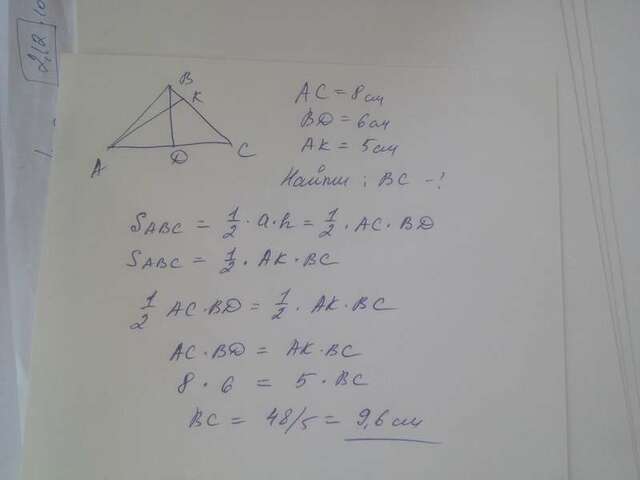 2,12 · 10
A
B
K
D
C
AC = 8 см
BD = 6 см
AK = 5 см
Найти: BC - ?
SABC = 1/2 · a · h = 1/2 · AC · BD
SABC = 1/2 · AK · BC
1/2 AC · BD = 1/2 · AK · BC
AC · BD = AK · BC
8 · 6 = 5 · BC
BC = 48/5 = 9,6 см